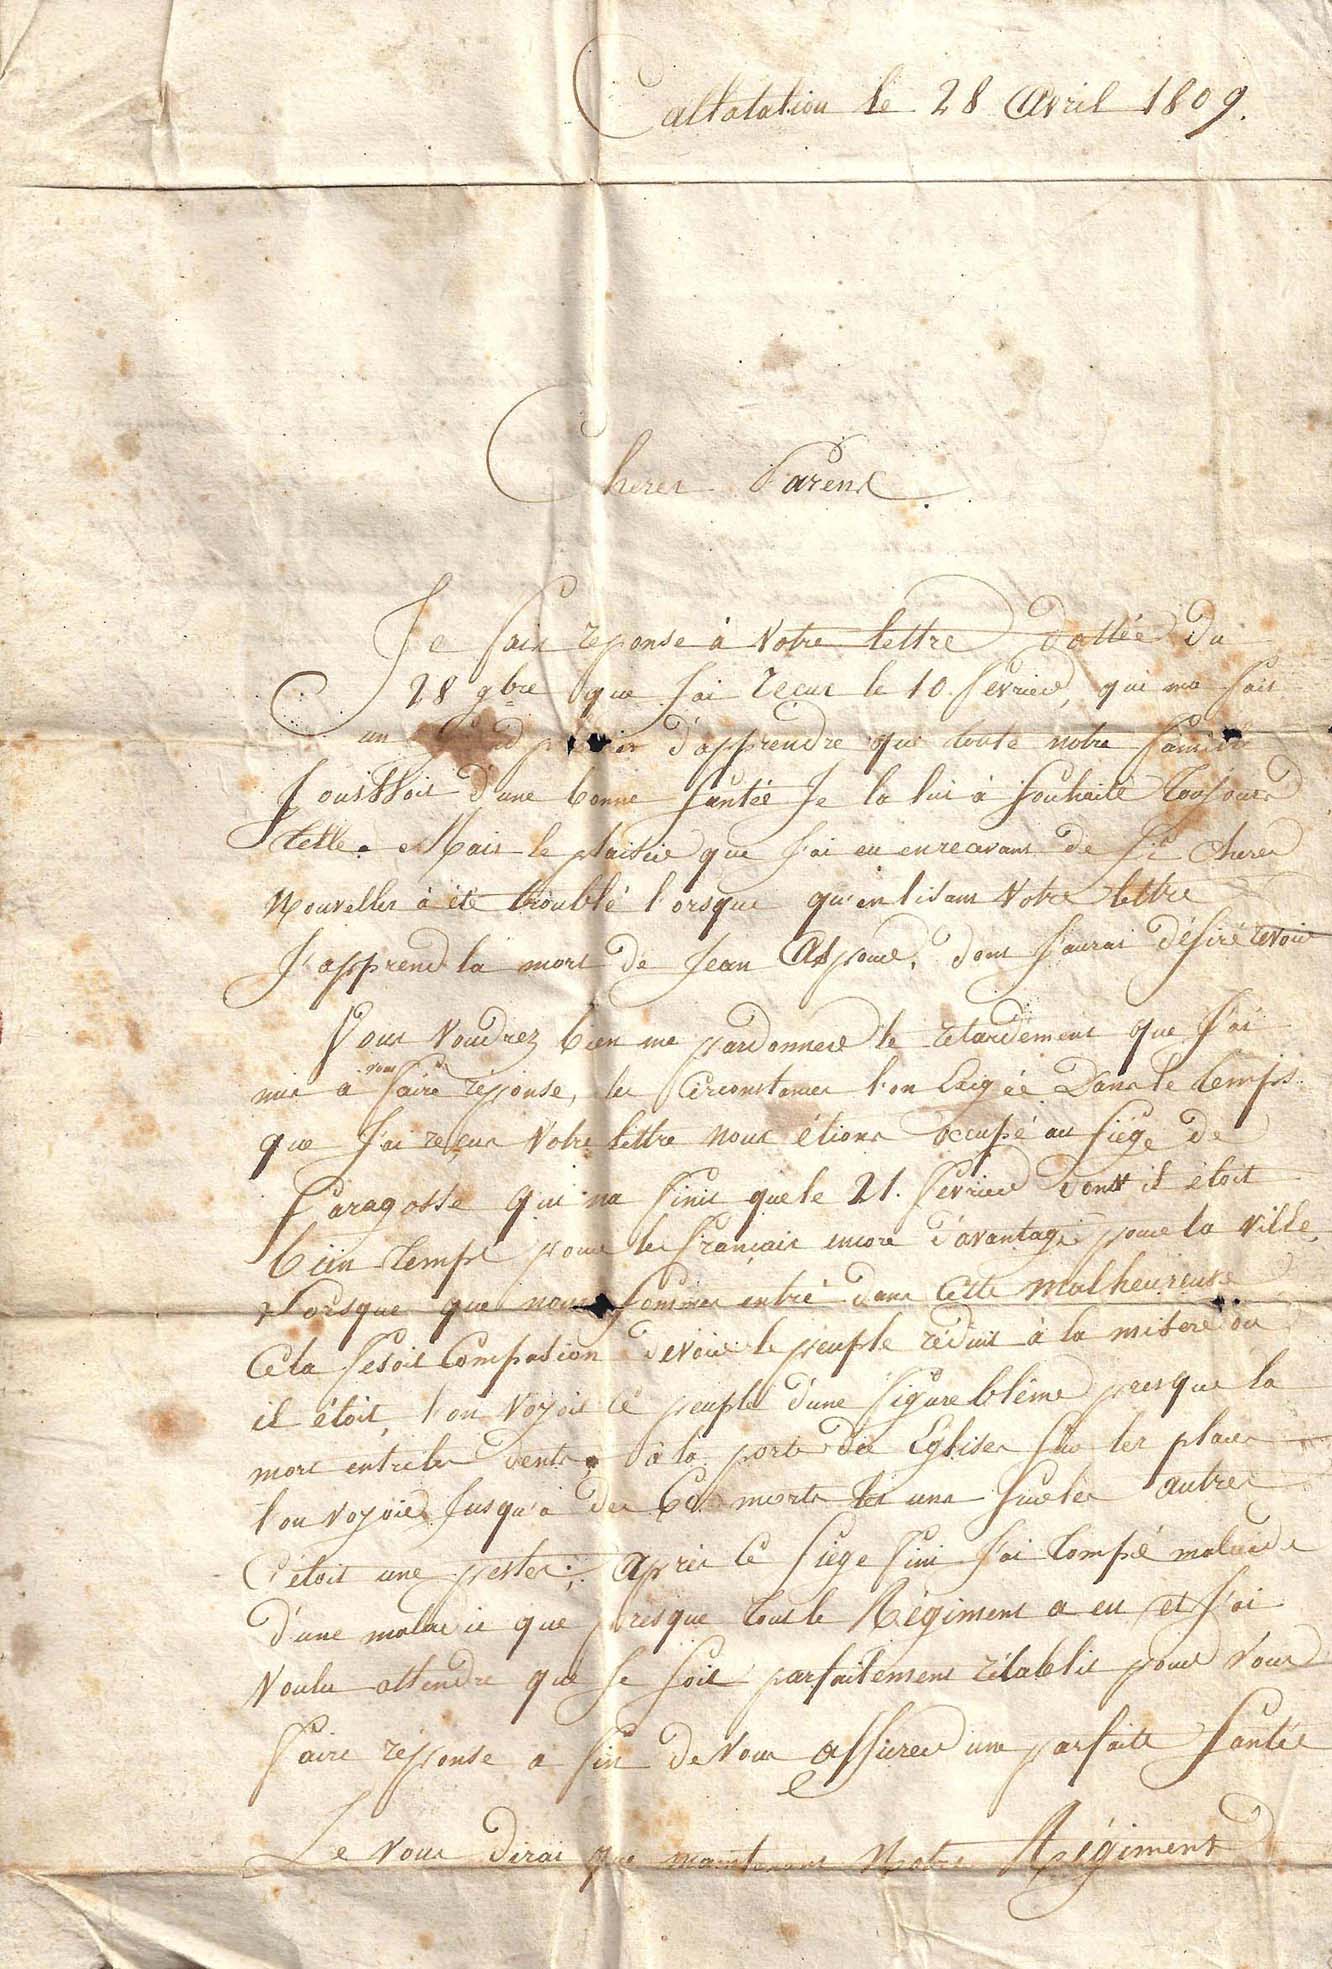 Caltatation le 28 Avril 1809.
Cheres Parens
Je fais reponse à Votre lettre dattée du
28 9bre que j'ai recus le 10 fevrier, qui ma fait
un grand plaisir d'apprendre que toute notre famille
jouissoit d'une bonne santée Je la lui à souhaite toujours
telle. Mais le plaisir que j'ai eu enrecevant de si cheres
Nouvelles à été troublé lorsque qu'en lisant Votre lettre
J'apprend la mort de Jean dont j'aurai désiré revoir
Vous Voudrez bien me pardonner le retardement que j'ai
mis à vous faire réponse, les Circonstances l'on Exigée Dans le temps
que J'ai reçus Votre lettre nous étions occupé au siége de
Saragosse qui na finit que le 21. fevrier dont il étoit
bien temps pour les français encore d'avantage pour la ville,
Lorsque que nous sommes entré dans Cette malheureuse
Cela fesoit Compasion de voir le peuple réduit à la misere ou
il étoit, l'on voyoit ce peuple d'une figure blême presque la
mort entre les dents, à la porte des Eglises sur les places
l'on voyoit jusqu'a des 60 morts les uns sur les autres
C'étoit une peste; après ce siége fini j'ai tompé malade
d'une maladie que presque tout le Régiment a eu et j'ai
Voulu attendre que je soit parfaitement rétablit pour Vous
faire réponse a fin de vous assurer une parfaite santée
Je vous dirai que maintenant Notre Régiment